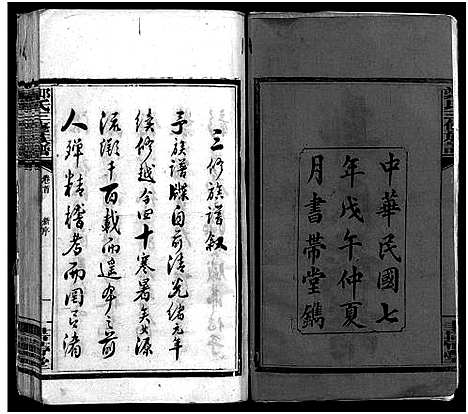 中華民國七
年戊午仲夏
月書帶堂鐫
三修族譜叙
予族譜牒自前清光緒元年
續修越今四十寒暑矣
流澌千百載而遥
人殫精稽考而
卷首
新序